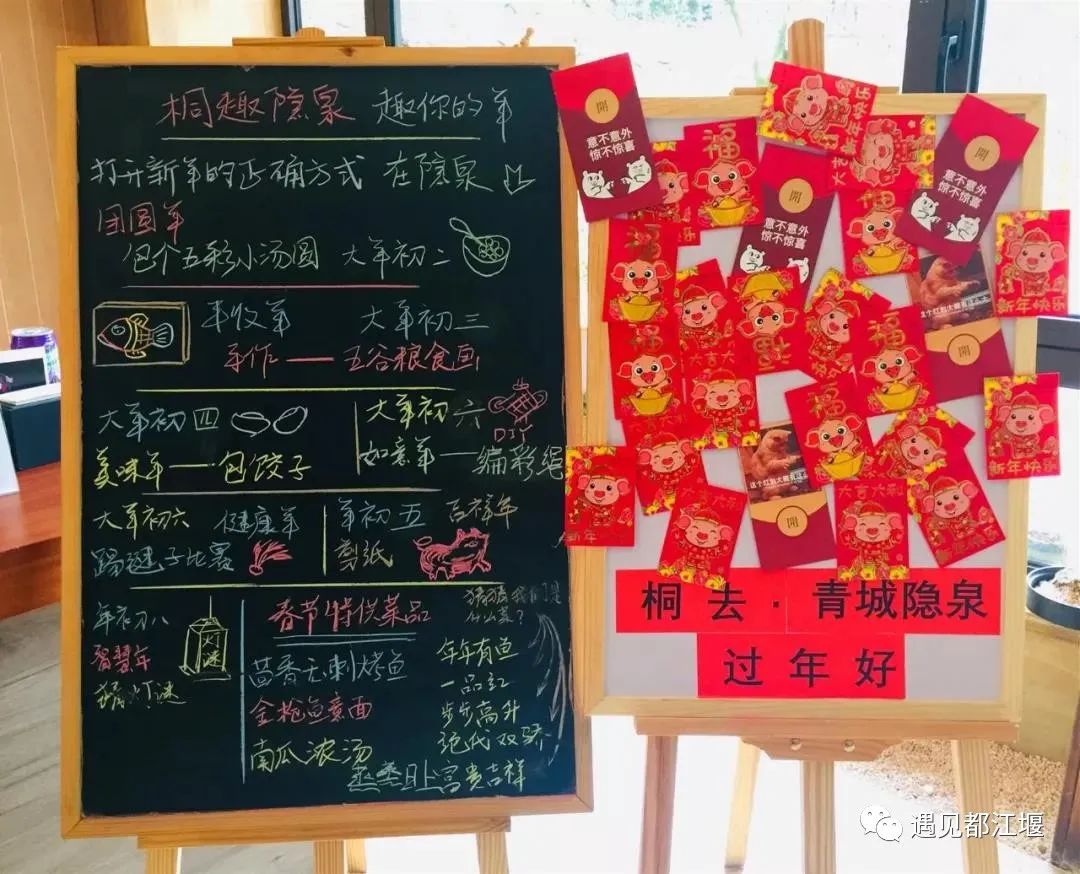 桐趣隐泉 趣你的年
打开新年的正确方式 在隐泉
团圆年
包个五彩小汤圆 大年初二
丰收年 大年初三
手作——五谷粮食画
大年初四
美味年——包饺子
大年初六
DIY
如意年——编彩绳
大年初六 健康年
踢毽子比赛
年初五 吉祥年
剪纸
年初八
智慧年
猜灯谜
灯谜
春节特供菜品
茴香无刺烤鱼
金枪鱼意面
南瓜浓汤
猜猜我们是
什么菜？
年年有鱼
一品红
步步高升
绝代双骄
蒸蒸日上富贵吉祥
開
意不意外
惊不惊喜
福
福
開
意不意外
惊不惊喜
開
意不意外
惊不惊喜
福
新年快乐
福
福
開
大吉大利
福
新年快乐
開
新年
大吉大利
新年快乐
桐去·青城隐泉
过年好
遇见都江堰